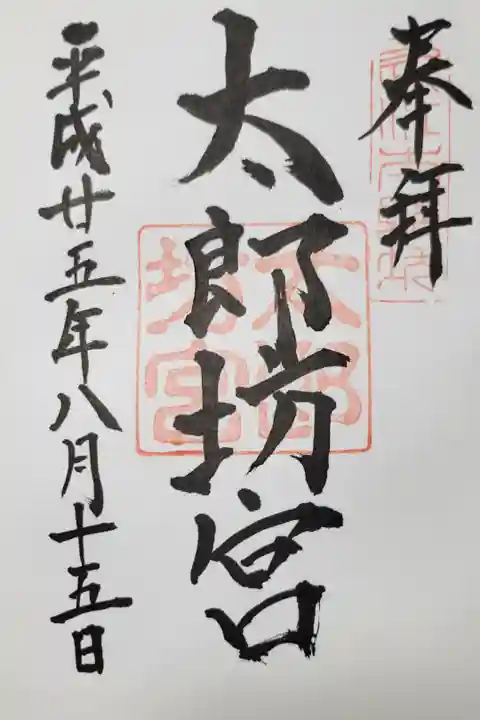 奉拝
太郎坊宮
平成廿五年八月十五日
太郎坊宮